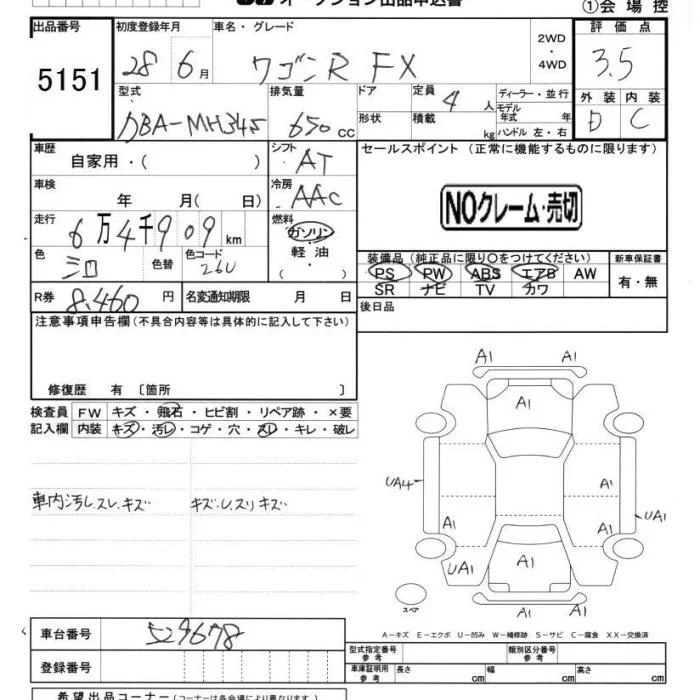 オークション出品申込書
①会場控
出品番号 初度登録年月 車名・グレード 評価点
5151 28年6月 ワゴンR FX 2WD・4WD 3.5
型式 排気量 ドア 定員 4人 ディーラー・並行 外装 内装
DBA-MH34S 650cc 形状 積載 kg モデル年式 年 D C
ハンドル 左・右
車歴 シフト セールスポイント(正常に機能するものに限ります)
自家用・( ) AT
車検 冷房 NOクレーム・売切
年 月( 日) AAC
走行 燃料
6万4千909km ガソリン・軽油・( )
色 色替 色コード 装備品(純正品に限り○をつけてください) 新車保証書
シロ 26U PS PW ABS エアB AW 有・無
SR ナビ TV カワ
R券 8,460円 名変通知期限 月 日 後日品
注意事項申告欄(不具合内容等は具体的に記入して下さい)
修復歴 有〔箇所 〕
検査員 FW キズ・飛石・ヒビ割・リペア跡・×要
記入欄 内装 キズ・汚レ・コゲ・穴・スレ・キレ・破レ
車内汚レ.スレ.キズ キズ.U.スリキズ
A1 A1
A1
UA4 A1
A1 A1 UA1
UA1 A1
A1
スペア
A-キズ E-エクボ U-凹み W-補修跡 S-サビ C-腐食 XX-交換済
車台番号 529678 型式指定番号 参考 類別区分番号 参考
登録番号 車庫証明用 参考 長さ cm 幅 cm 高さ cm
希望出品コーナー(コーナーは各会場により異なります)